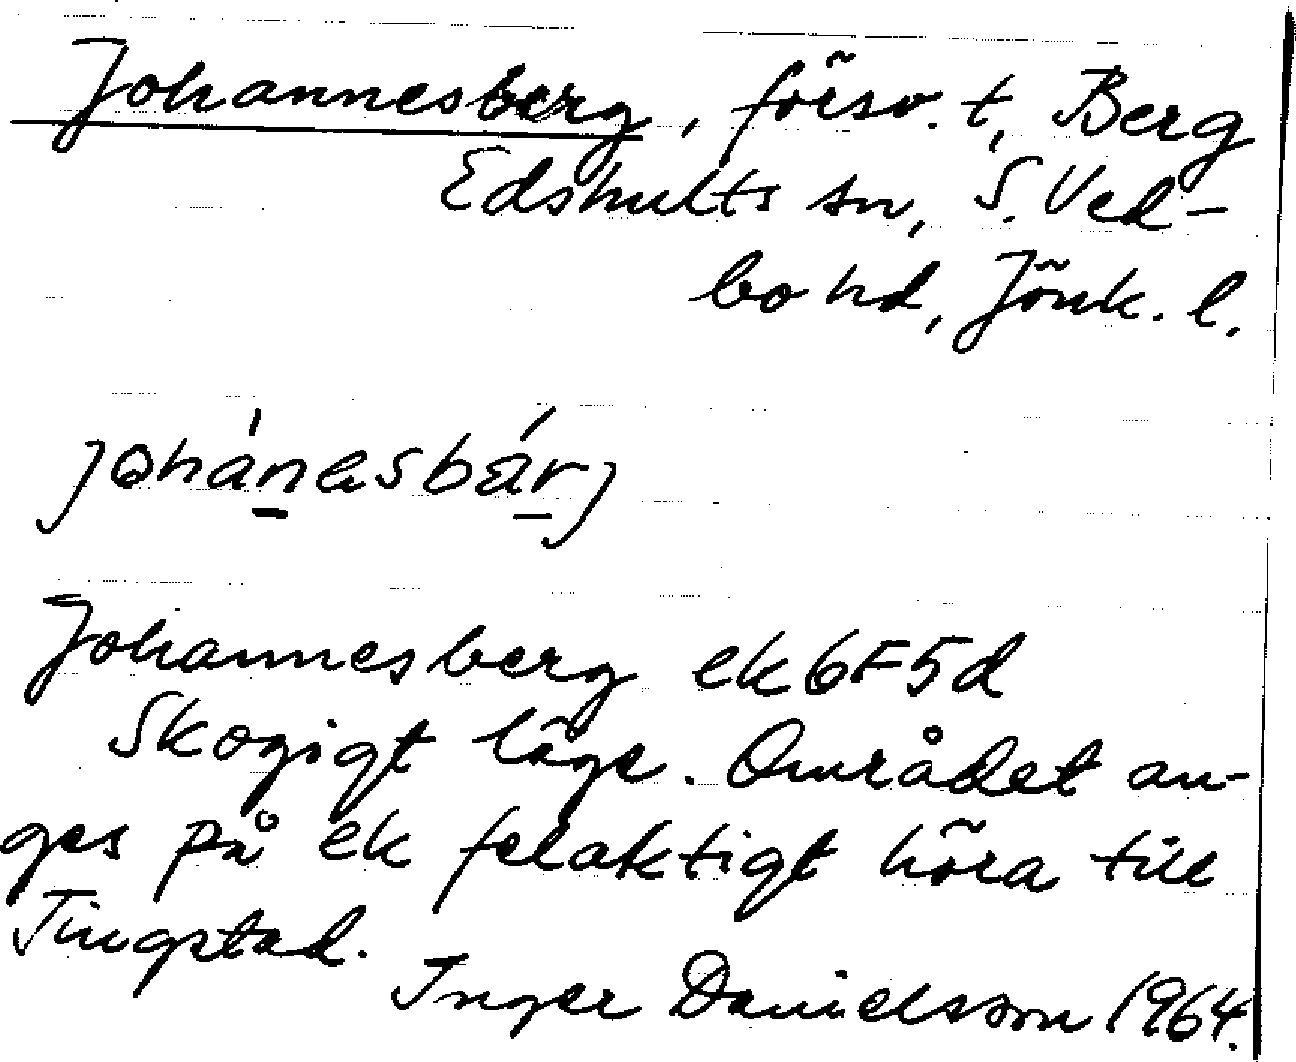 Johannesberg, försv. t, Berg
Edshults sn, S. Ved-
bo hd, Jönk. l.
johánesbärj
Johannesberg ek 6F5d
Skogigt läge. Området an-
ges på ek felaktigt höra till
Tingstad.
Inger Danielsson 1964.